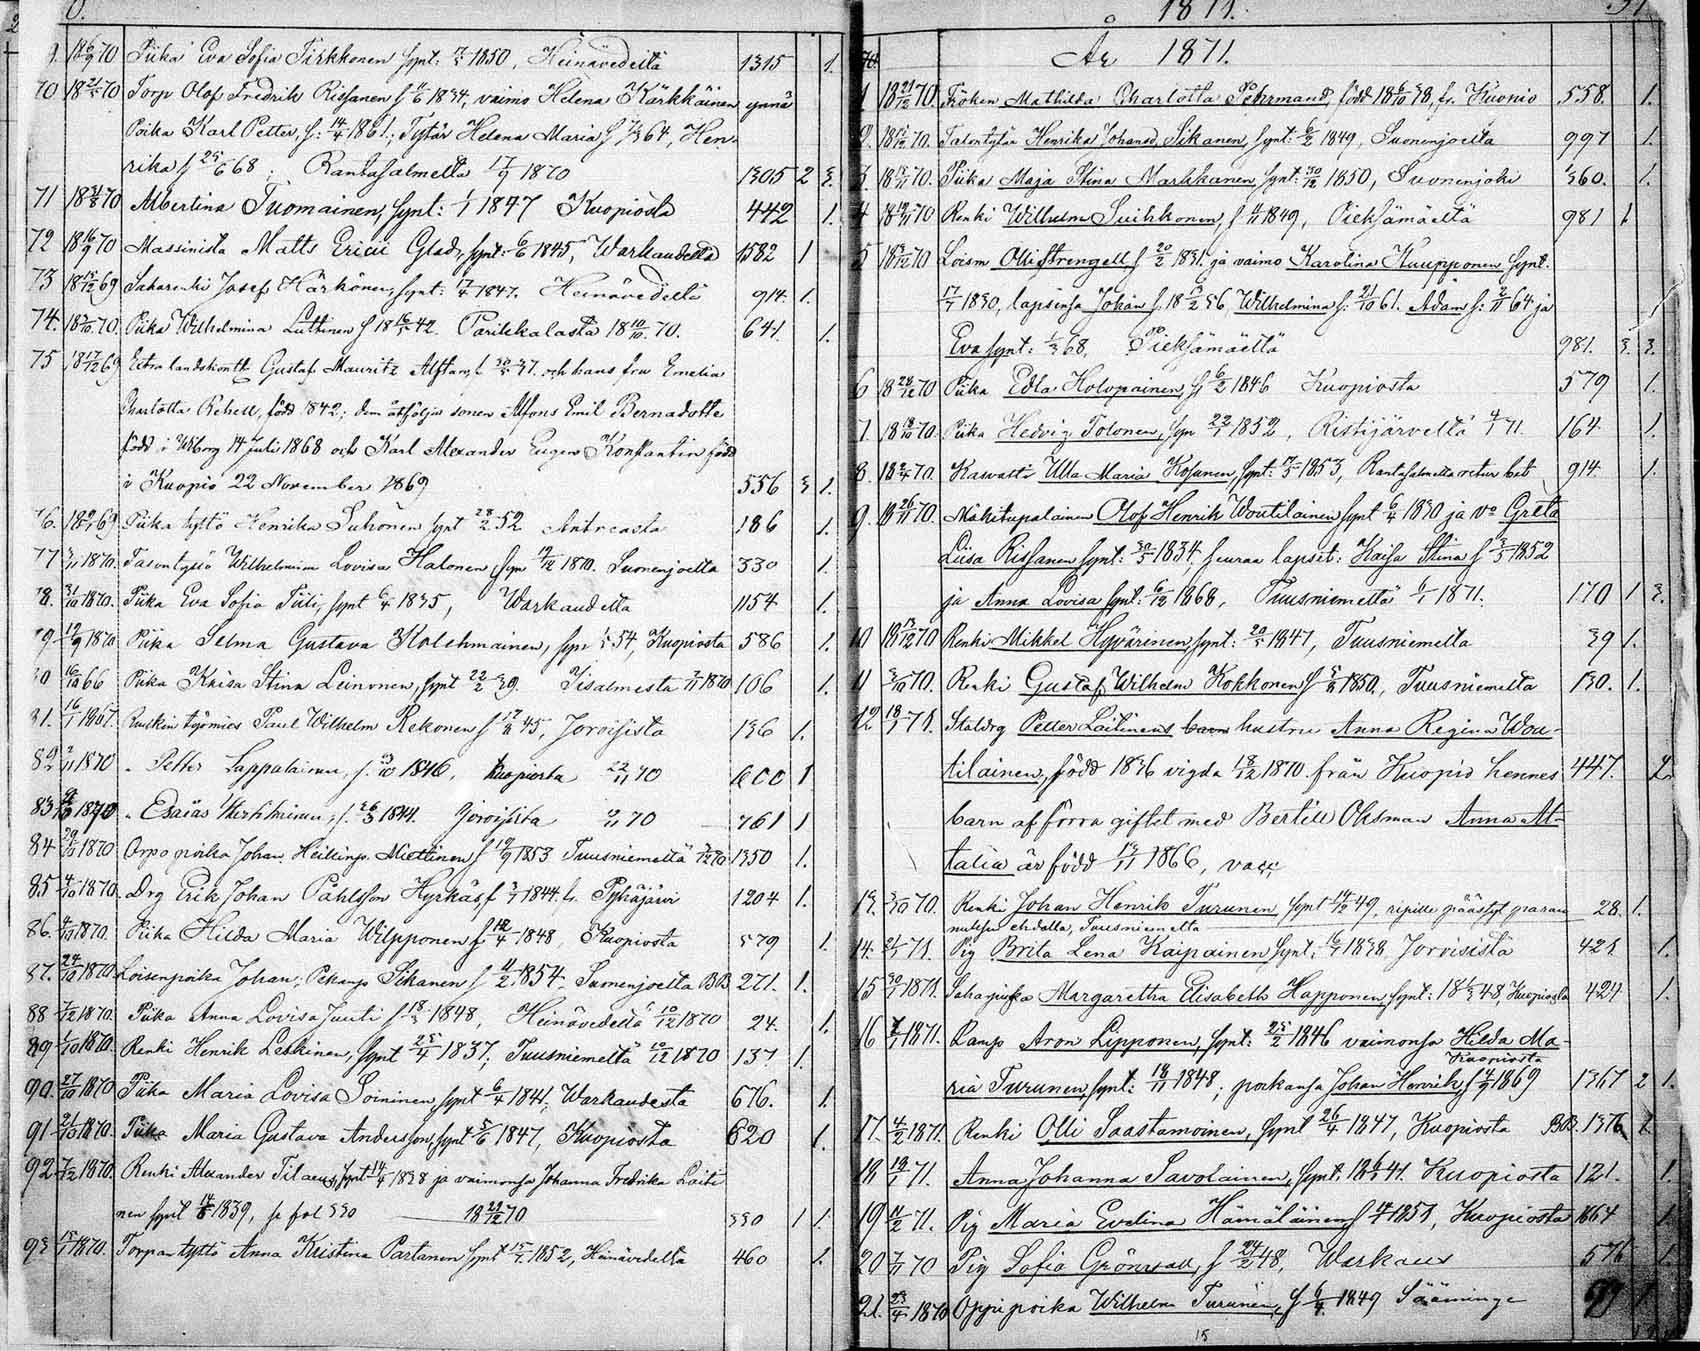 1871.
18 6/9 70 Piika Eva Sofia Tirkkonen synt: 1850, Heinävedeltä 1315 1.
70 18 70 Torp Olof Fredrik Rissanen 1834, vaimo Helena Kärkkäinen ynnä
Poika Karl Petter, f: 14/4 1861; Tytär Helena Maria f 64, Hen-
rika f 25/6 68; Rantasalmelta 17/9 1870 1305 2 3.
71 18 70 Albertina Tuomainen, synt: 1/1 1847 Kuopiosta 442 1.
72 18 16/9 70 Massinista Matts Ericii Glad, synt: 6/6 1845, Warkaudesta 1582 1
73 18 15/12 69 Saharenki Josef Härkönen, synt: 1847. Heinävedeltä 914. 1.
74. 18 70 Piika Wilhelmina Luttinen f 18 42. Parikkalasta 18 10/10 70. 641. 1.
75 18 17/12 69 Extra landskontt. Gustaf Mauritz Alftan, f 37. och hans fru Emelia
Charlotta Rehell, född 1842; dem åtföljer sonen Alfons Emil Bernadotte
född i Wiborg 14 Juli 1868 och Karl Alexander Eugen Konstantin född
i Kuopio 22 November 1869 556 3 1.
76. 18 69 Piika tyttö Henrika Suhonen synt 28/2 52 Antreasta 186 1.
77 1870. Wilhelmiina Lovisa Halonen, syn 1870. Suonenjoelta 330 1.
78. 31/10 1870. Piika Eva Sofia Tiili, synt 6/4 1835, Warkaudelta 1154 1.
79. 12/9 1870 Piika Selma Gustava Kolehmainen, syn 54, Kuopiosta 586 1.
80 16/10 66 Piika Kaisa Stina Leinonen, synt 22/2 39. Iisalmesta 1870 106 1.
81. 16/1 1867. Paul Wilhelm Rekonen f 45, Joroisista 136 1.
82 2/11 1870 " Petter Lappalainen, f. 1846, Kuopiosta 22/11 70 600 1
83 1870 " Esaias f. 26/3 1844. Joroisista 70 761 1
84 29/10 1870 Orpo poika Johan Heikinp. Miettinen f 19/9 1853 Tuusniemeltä 1350 1.
85. 4/10 1870. Drg Erik Johan Påhlsson Hyrkäs, f 1844. fr. Pyhäjärvi 1204 1.
86. 4/10 1870. Piika Hilda Maria Wilpponen f 12/4 1848, Kuopiosta 579 1.
87. 24/10 1870 Loisenpoika Johan, Pekanp Sikanen f 11/2 1854, Suonenjoelta BB 271. 1.
88 7/12 1870. Piika Anna Lovisa Juuti f 18/3 1848, Heinävedeltä 10/12 1870 24. 1.
89 1870. Renki Henrik Leskinen, synt 25/4 1837, Tuusniemeltä 10/12 1870 137. 1.
90. 27/10 1870 Piika Maria Lovisa Soininen synt 6/4 1841, Warkaudesta 676. 1.
91 21/10 1870. Piika Maria Gustava Andersson, synt 5/6 1847, Kuopiosta 620 1.
92 7/12 1870. Renki Alexander Tilaeus, synt 14/4 1838 ja vaimonsa Johanna Fredrika Laiti
nen synt 14/8 1839, se fol 330 18 21/12 70 330 1 1.
93 15/1 1870. Torpantyttö Anna Kristina Partanen synt 15/7 1852, Heinävedeltä 460 1.
År 1871.
1 18 21/12 70. Fröken Mathilda Charlotta Fehrmand, född 18 6/10 38, fr. Kuopio 558. 1.
2. 18 70. Talontytär Henrika Johansd. Sikanen, synt: 6/2 1849, Suonenjoelta 997 1.
3. 18 70. Piika Maja Stina Markkanen, synt: 30/12 1850, Suonenjoki 360. 1.
4 18 70 Renki Wilhelm Suihkonen, f 1849, Pieksämäeltä 981 1
5 18 70 Loism Olli Strengell f 20/2 1831 ja vaimo Karolina Kaupponen synt.
1830, lapsinsa Johan f. 18 56, Wilhelmina f: 21/10 61. Adam f: 2/11 64 ja
Eva synt: 68, Pieksämäeltä 981. 3. 3.
6 18 28/12 70 Piika Edla Holopainen, f 6/2 1846 Kuopiosta 579 1.
7. 18 70. Piika Hedvig Tolonen, syn 22/1 1852, Ristijärveltä 4/1 71. 164 1.
8. 18 70. Kasvatti Ulla Maria Kosunen, synt: 1853, Rantasalmelta retur bet 914. 1.
9. 18 26/11 70. Mäkitupalainen Olof Henrik Woutilainen synt 6/4 1830 ja vo Greta
Liisa Rissanen synt: 30/5 1834, seuraa lapset: Kaisa Stina f 1852
ja Anna Lovisa synt: 6/12 1868, Tuusniemeltä 6/1 1871. 170 1 3.
10 18 70 Renki Mikkel Hyvärinen, synt: 1847, Tuusniemeltä 39 1.
11 70. Renki Gustaf Wilhelm Kokkonen f 1850, Tuusniemeltä 130. 1.
12 18/1 71. Staldrg Petter Laitinens hustru Anna Regina Wou-
tilainen, född 1836 vigda 18/12 1870 från Kuopio hennes 447. 2
barn af förra giftet med Bertill Oksman Anna At-
talia är född 13/11 1866, vacc.
13. 70. Renki Johan Henrik Turunen, synt 14/12 49, ripille päästyt
ehdolla, Tuusniemeltä 28. 1.
14. 71. Pig Brita Lena Kaipainen, synt: 1838, Joroisista 421 1.
15 30/1 1871. Sahapiika Margaretha Elisabeth Happonen, synt: 18 48, Kuopiosta 424 1.
16 1871. Kamp Aron Lipponen, synt: 25/2 1846 vaimonsa Hilda Ma-
ria Turunen, synt: 18/11 1848; poikansa Johan Henrik f 4/9 1869 Kuopiosta 1367 2 1.
17. 4/2 1871. Renki Olli Saastamoinen, synt 26/4 1847, Kuopiosta BB. 1376 1
18 71. Anna Johanna Savolainen, synt. 18 41. Kuopiosta 121. 1.
19 11/2 71. Pig Maria Evelina Hämäläinen f 1851, Kuopiosta 1664 1.
20 70 Pig Sofia Grönvall, f 24/2 48, Warkaus 576 1.
21. 23/4 1870 Oppipoika Wilhelm Turunen, f 1849 Sääminge 1
15